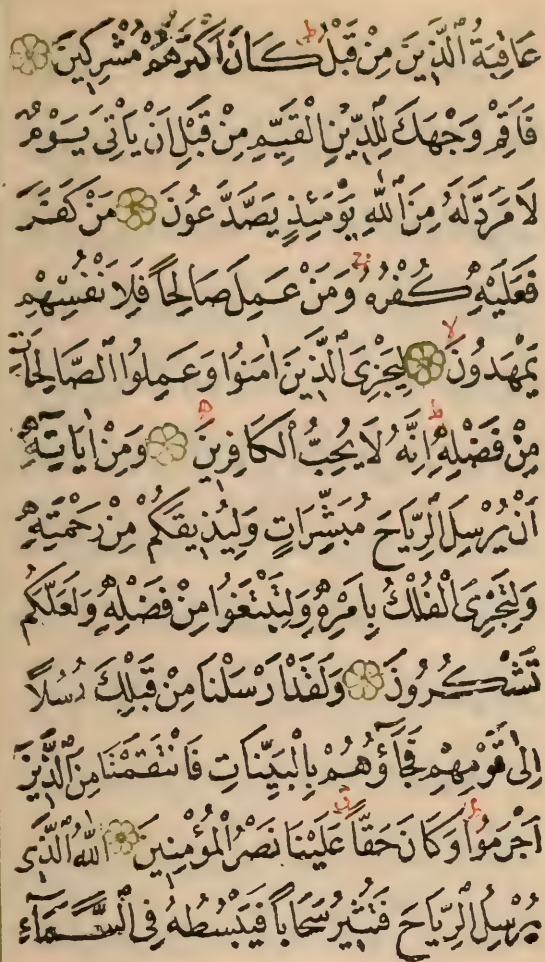 عَاقِبَةُ الَّذِينَ مِنْ قَبْلُ ط كَانَ اَكْثَرُهُمْ مُشْرِكِينَ
فَاَقِمْ وَجْهَكَ لِلدِّينِ الْقَيِّمِ مِنْ قَبْلِ اَنْ يَأْتِىَ يَوْمٌ
لَا مَرَدَّ لَهُ مِنَ اللّٰهِ يَوْمَئِذٍ يَصَّدَّعُونَ مَنْ كَفَرَ
فَعَلَيْهِ كُفْرُهُ ج وَمَنْ عَمِلَ صَالِحاً فَلِاَنْفُسِهِمْ
يَمْهَدُونَ لا لِيَجْزِىَ الَّذِينَ اٰمَنُوا وَعَمِلُوا الصَّالِحَاتِ
مِنْ فَضْلِهِ ط اِنَّهُ لَا يُحِبُّ الْكَافِرِينَ ه وَمِنْ اٰيَاتِهِ
اَنْ يُرْسِلَ الرِّيَاحَ مُبَشِّرَاتٍ وَلِيُذِيقَكُمْ مِنْ رَحْمَتِهِ
وَلِتَجْرِىَ الْفُلْكُ بِاَمْرِهِ وَلِتَبْتَغُوا مِنْ فَضْلِهِ وَلَعَلَّكُمْ
تَشْكُرُونَ وَلَقَدْ اَرْسَلْنَا مِنْ قَبْلِكَ رُسُلاً
اِلٰى قَوْمِهِمْ فَجَآؤُهُمْ بِالْبَيِّنَاتِ فَانْتَقَمْنَا مِنَ الَّذِينَ
اَجْرَمُوا وَكَانَ حَقّاً عَلَيْنَا نَصْرُ الْمُؤْمِنِينَ اَللّٰهُ الَّذِى
يُرْسِلُ الرِّيَاحَ فَتُثِيرُ سَحَاباً فَيَبْسُطُهُ فِى السَّمَآءِ